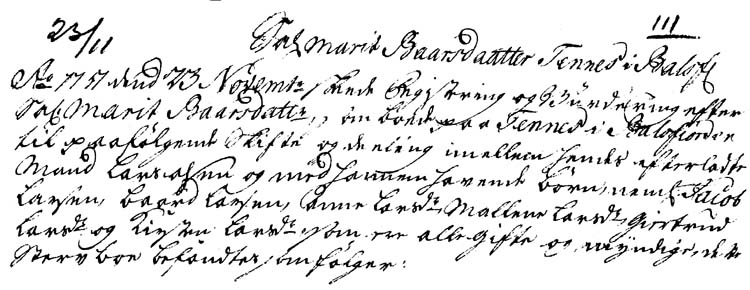 23/11 Sal: Marit Baarsdaatter Tennes i Balsf: 111
Ao 1757 dend 23 Novembr skeede Registering og Vurdering efter
Sal: Marit Baarsdattr, som boede paa Tennes i Balsfiorden
til paafølgende Skifte og deeling imellem hendes efterladte
Mand Lars Olsen og med hannem havende børn, neml: Jacob
Larsen, baard Larsen, Anne Larsdr, Mallene Larsdr, Giertrud
Larsdr og Kirsten Larsdr, som ere alle gifte og myndige,
Sterv boe befandtes som følger: